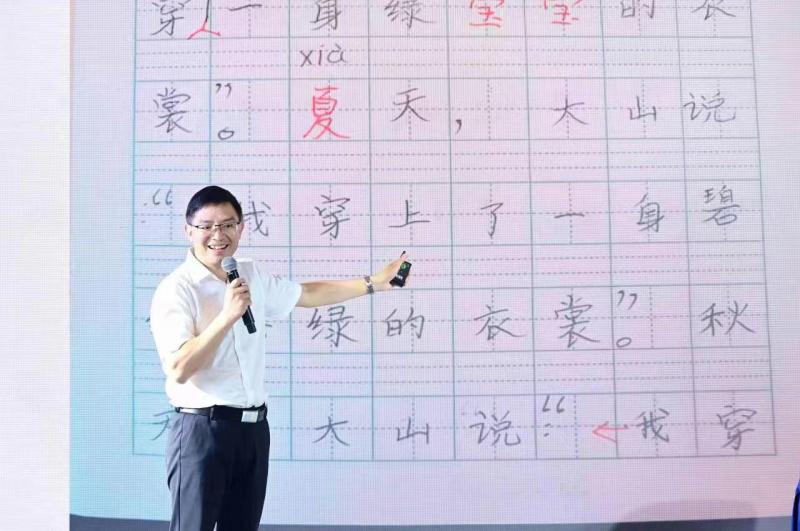 穿一身绿的衣
xià
裳”。夏天，大山说
：“我穿上了一身碧
绿的衣裳”。秋
天大山说：“我穿